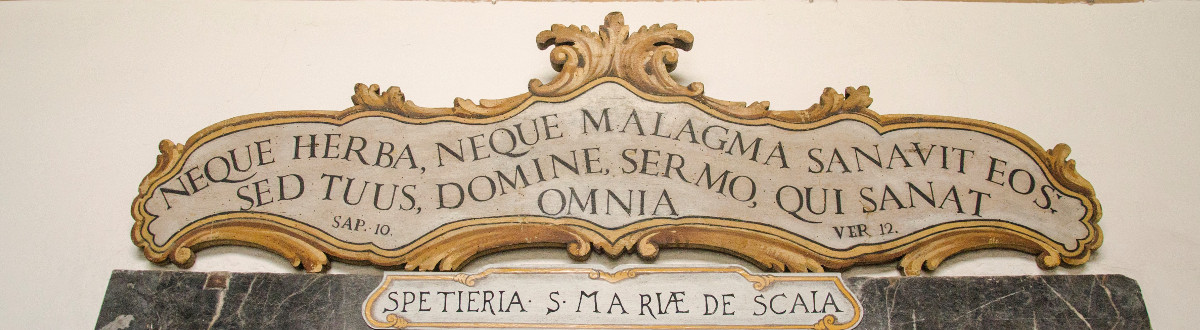 NEQUE HERBA, NEQUE MALAGMA SANAVIT EOS:
SED TUUS, DOMINE, SERMO, QUI SANAT
OMNIA
SAP. 10. VER 12.
SPETIERIA · S · MARIÆ DE SCALA